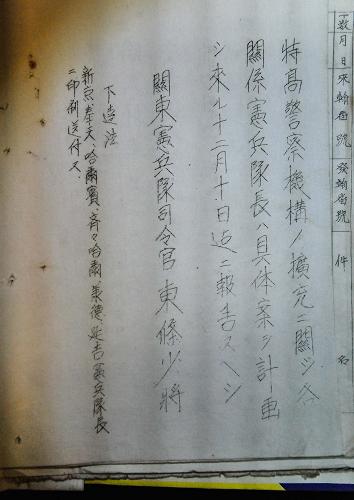 數月日來翰番號 發翰番號 件名
特高警察機構ノ擴充ニ關シ各
關係憲兵隊長ハ具体案ヲ計画
シ來ル十二月十日迄ニ報告スヘシ
關東憲兵隊司令官東條少將
下達法
新京、奉天、哈爾賓、斉々哈爾、承德、延吉憲兵隊長
ニ印刷送付ス、